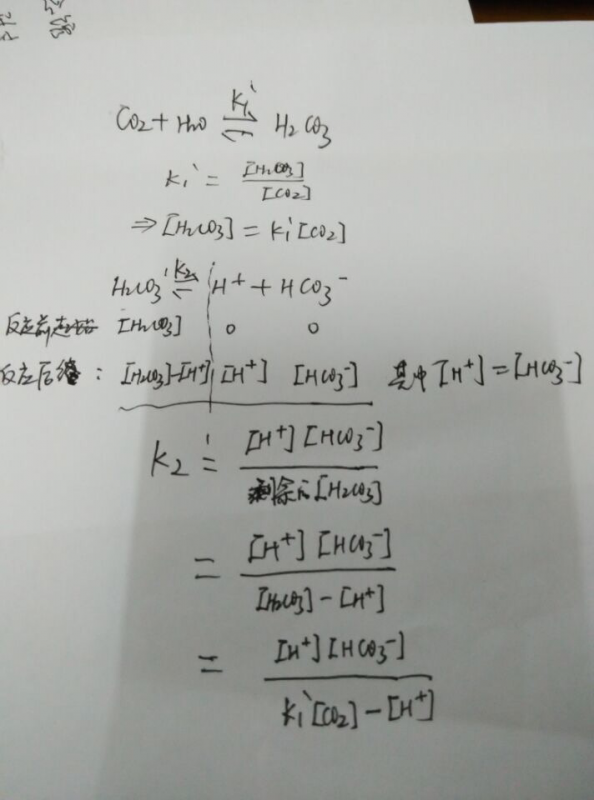 CO2 + H2O ⇌ H2CO3
K1'
K1' = [H2CO3] / [CO2]
⇒ [H2CO3] = K1'[CO2]
H2CO3 ⇌ H+ + HCO3-
K2
反应前 [H2CO3] 0 0
反应后: [H2CO3]-[H+] [H+] [HCO3-] 其中[H+]=[HCO3-]
K2' = [H+][HCO3-] / 剩余的[H2CO3]
= [H+][HCO3-] / [H2CO3]-[H+]
= [H+][HCO3-] / K1'[CO2]-[H+]